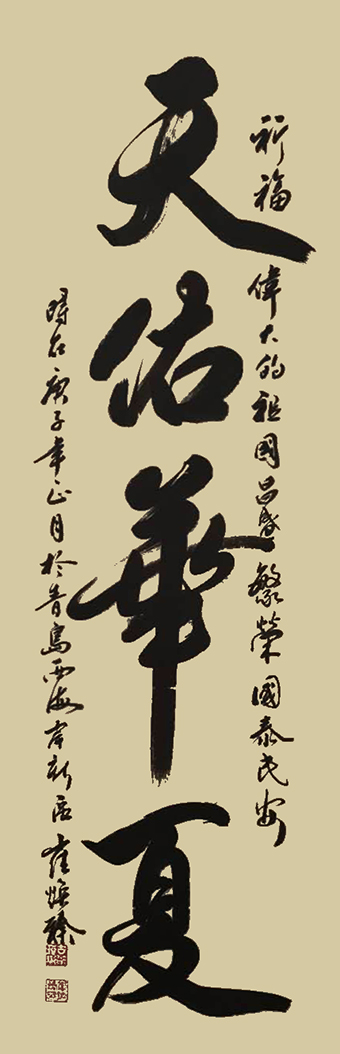 祈福
偉大的祖國昌盛繁榮國泰民安
天佑華夏
時在庚子年正月於青島西海岸新區崔